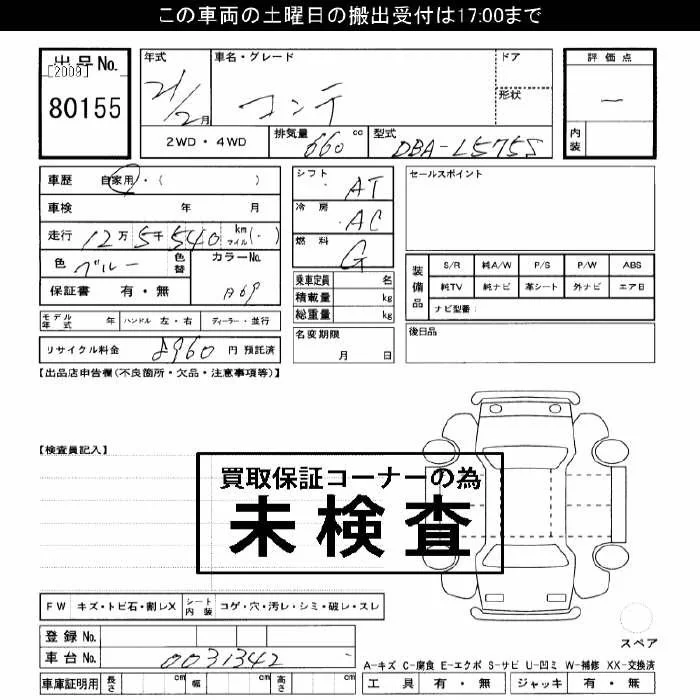 この車両の土曜日の搬出受付は17:00まで
出品No.
[2009]
80155
年式
21/2月
車名・グレード
コンテ
ドア
形状
評価点
一
内装
2WD・4WD
排気量 660 cc
型式 DBA-L575S
車歴 自家用・( )
車検 年 月
走行 12万5千540 km マイル(・)
色 ブルー 色替 カラーNo.
保証書 有・無 B69
シフト AT
冷房 AC
燃料 G
乗車定員 名
積載量 kg
総重量 kg
セールスポイント
装備品
S/R 純A/W P/S P/W ABS
純TV 純ナビ 革シート 外ナビ エアB
ナビ型番:
モデル年式 年 ハンドル 左・右 ディーラー・並行
名変期限
月 日
後日品
リサイクル料金 8960 円 預託済
【出品店申告欄(不良箇所・欠品・注意事項等)】
【検査員記入】
買取保証コーナーの為
未検査
FW キズ・トビ石・割レX シート内装 コゲ・穴・汚レ・シミ・破レ・スレ
登録No.
車台No. 0031342
スペア
A-キズ C-腐食 E-エクボ S-サビ U-凹ミ W-補修 XX-交換済
車庫証明用 長さ cm 幅 cm 高さ cm
工具 有・無 ジャッキ 有・無